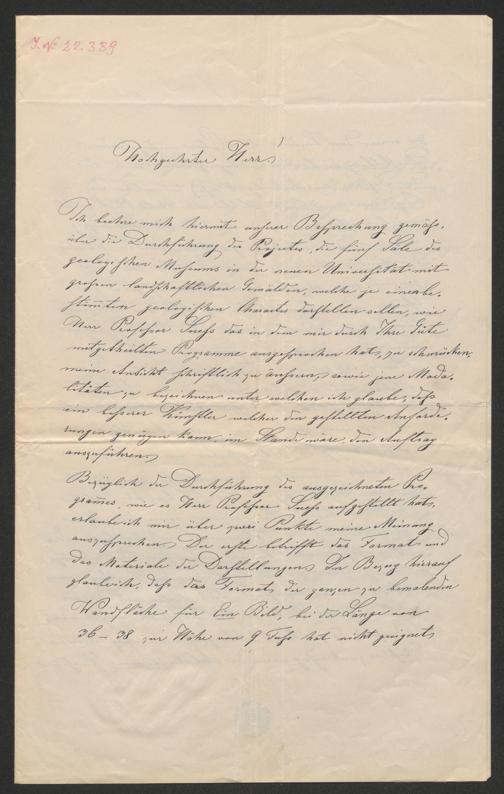 J. N. 22.389
Hochgeehrter Herr!
Ich beehre mich hiermit unserer Besprechung gemäß,
über die Durchführung des Projectes, die fünf Säle des
geologischen Museums in der neuen Universität mit
großen landschaftlichen Gemälden, welche je einen be-
stimmten geologischen Charakter darstellen sollen, wie
Herr Professor Sueß das in dem mir durch Ihre Güte
mitgetheilten Programme ausgesprochen hat, zu schmücken,
meine Ansicht schriftlich zu äußern, sowie jene Moda-
litäten zu bezeichnen unter welchen ich glaube, daß
ein Künstler welcher den gestellten Anforde-
rungen genügen kann, im Stande wäre den Auftrag
auszuführen.
Bezüglich der Durchführung des ausgezeichneten Pro-
grammes, wie es Herr Professor Sueß aufgestellt hat,
erlaube ich mir über zwei Punkte meine Meinung
auszusprechen. Der erste betrifft das Format und
das Materiale der Darstellungen. In Bezug hierauf
glaube ich, daß das Format, der ganzen zu bemalenden
Wandfläche für Ein Bild, bei der Länge von
36 – 38 zur Höhe von 9 Fuß hat nicht geeignet